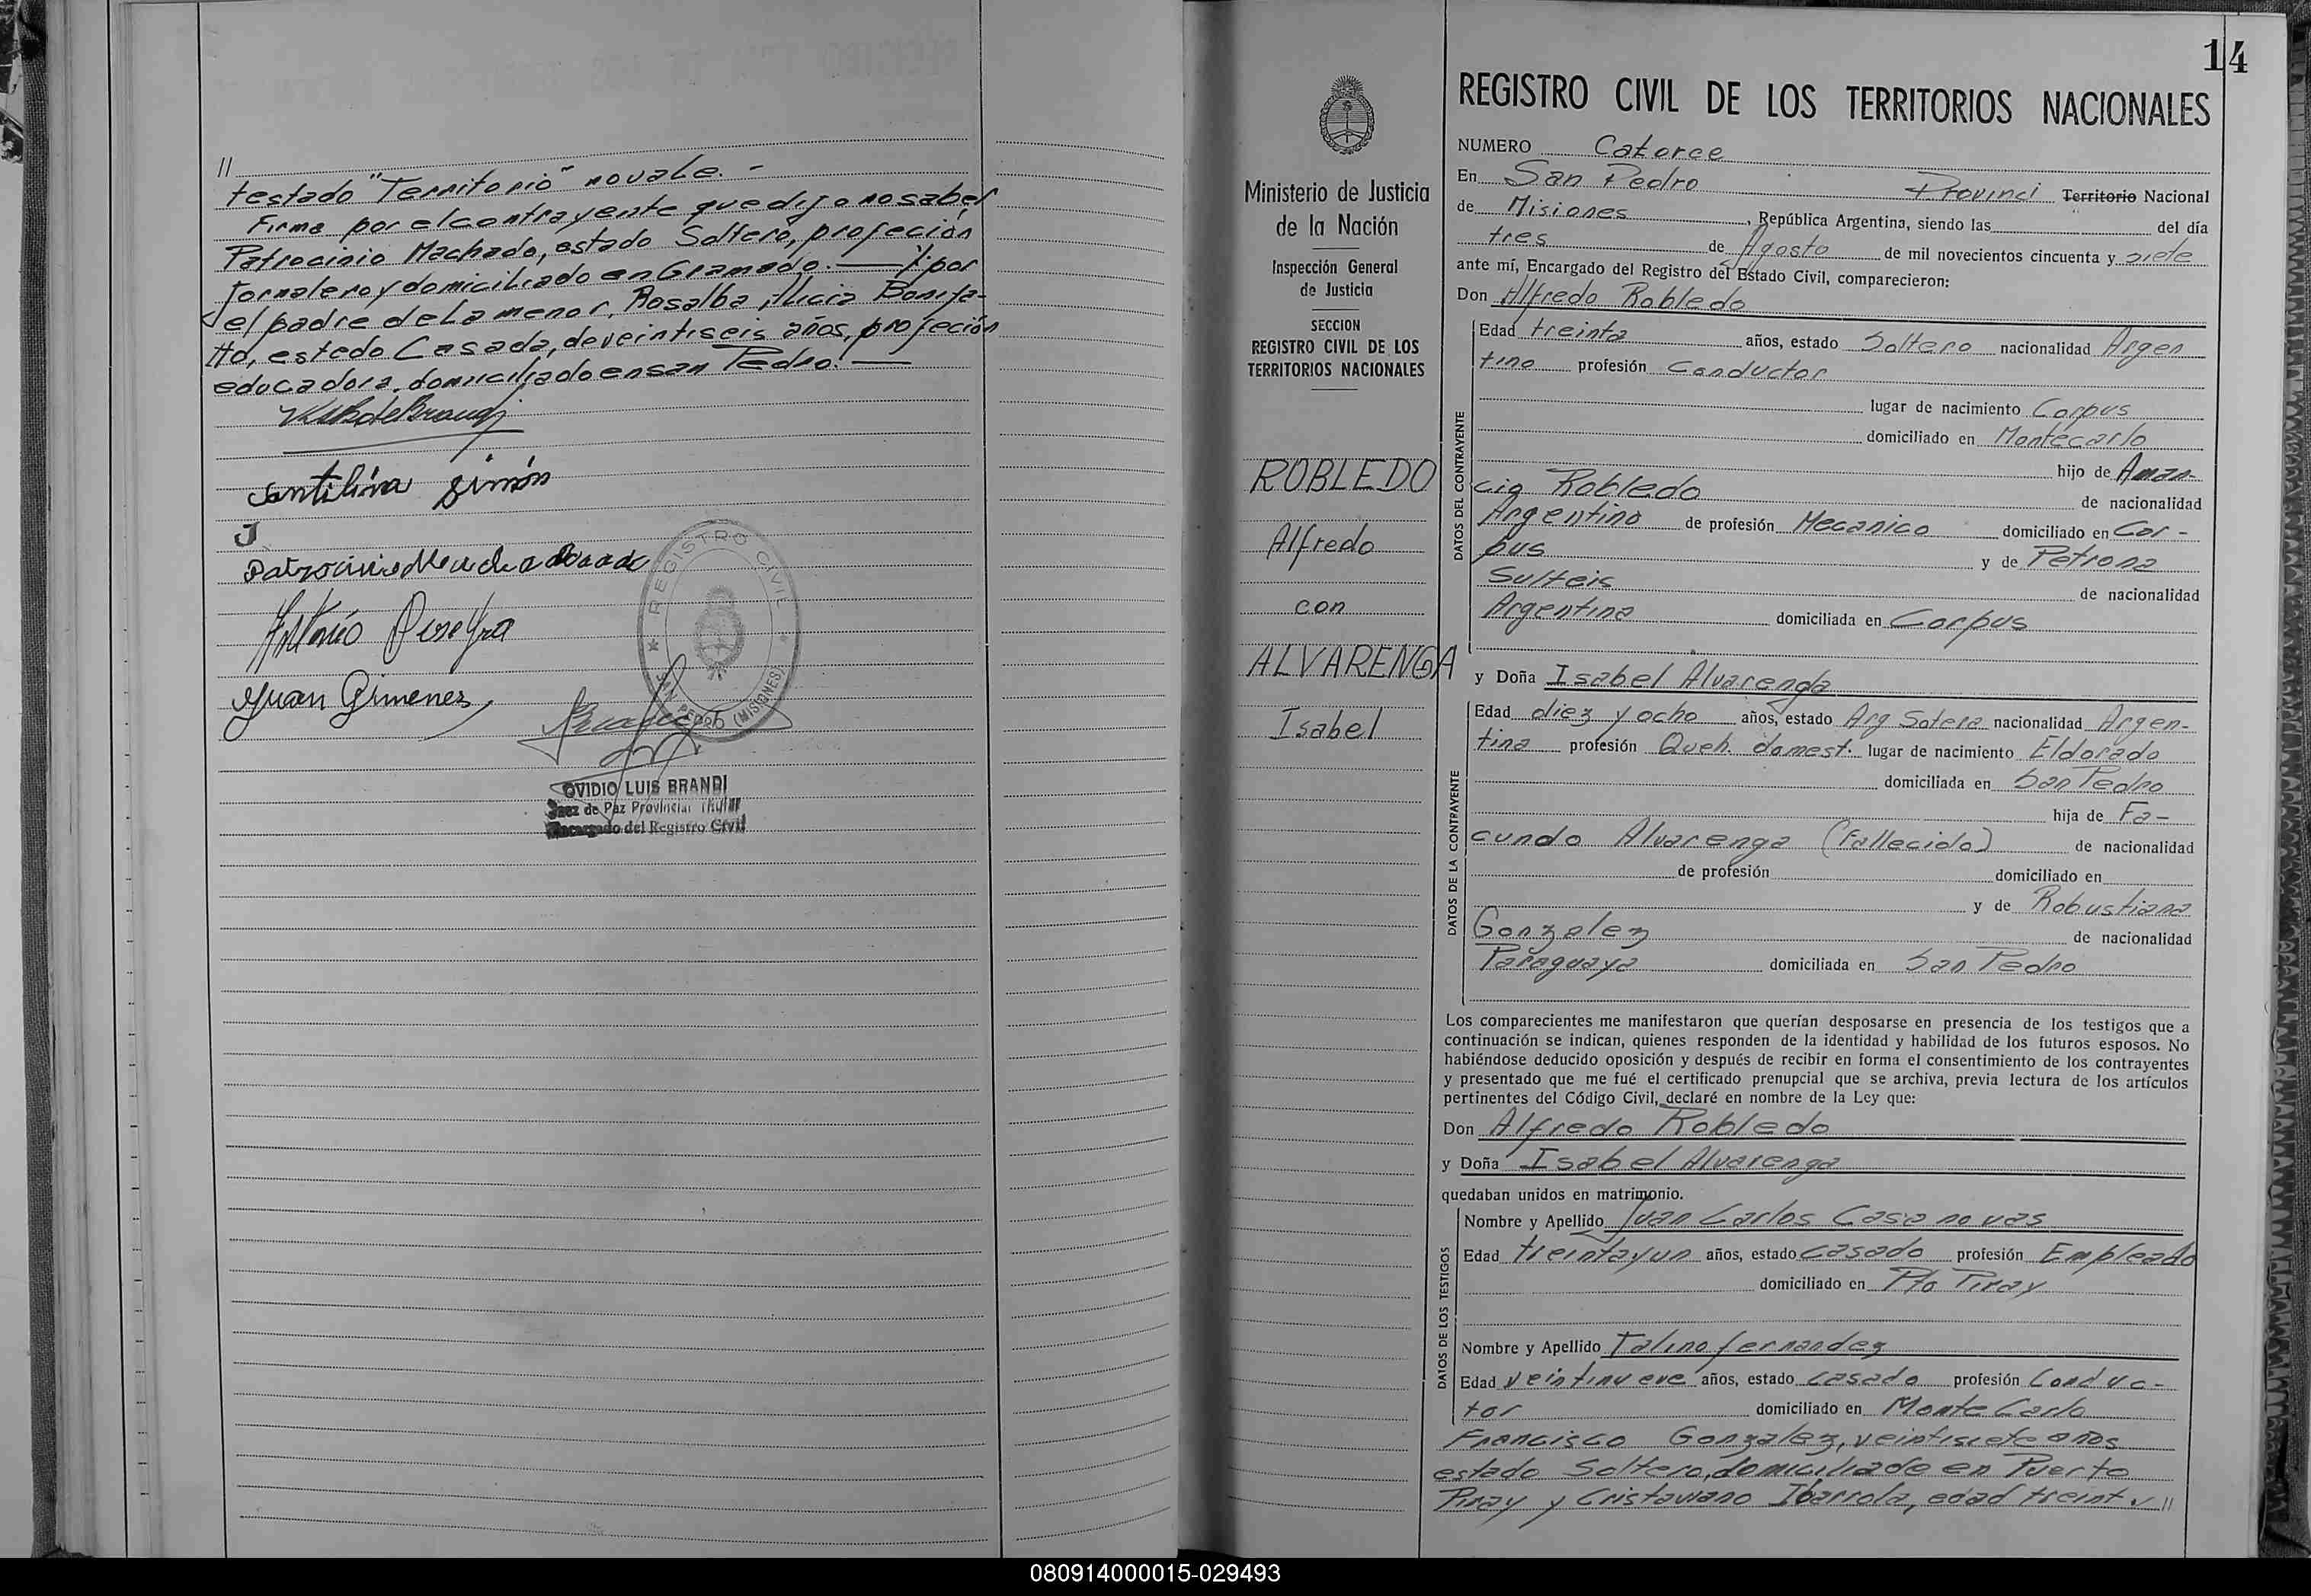 //
testado "Territorio" novale. -
Firma por el contrayente que dijo no saber
Patrocinio Machado, estado Soltero, profeción
Jornalero y domiciliado en Gramado. — Y por
el padre de La menor, Rosalba Alicia Bonifa-
tto, estado Casada, de veintiseis años, profeción
educadora, domiciliado en san Pedro. —
Santilina Simón
Antonio Pereyra
Juan Gimenes
REGISTRO CIVIL
SAN PEDRO (MISIONES)
OVIDIO LUIS BRANDI
Juez de Paz Provincial Titular
Encargado del Registro Civil
14
Ministerio de Justicia
de la Nación
Inspección General
de Justicia
SECCION
REGISTRO CIVIL DE LOS
TERRITORIOS NACIONALES
ROBLEDO
Alfredo
con
ALVARENGA
Isabel
REGISTRO CIVIL DE LOS TERRITORIOS NACIONALES
NUMERO Catorce
En San Pedro Provinci Territorio Nacional
de Misiones, República Argentina, siendo las del día
tres de Agosto de mil novecientos cincuenta y siete
ante mí, Encargado del Registro del Estado Civil, comparecieron:
Don Alfredo Robledo
DATOS DEL CONTRAYENTE
Edad treinta años, estado Soltero nacionalidad Argen
tino profesión Conductor
lugar de nacimiento Corpus
domiciliado en Montecarlo
hijo de Aman-
cio Robledo de nacionalidad
Argentino de profesión Mecanico domiciliado en Cor-
pus y de Petrona
Sulteis de nacionalidad
Argentina domiciliada en Corpus
y Doña Isabel Alvarenga
DATOS DE LA CONTRAYENTE
Edad diez y ocho años, estado Arg Sotera nacionalidad Argen-
tina profesión Queh. domest. lugar de nacimiento Eldorado
domiciliada en San Pedro
hija de Fa-
cundo Alvarenga (Fallecido) de nacionalidad
de profesión domiciliado en
y de Robustiana
Gonzalez de nacionalidad
Paraguaya domiciliada en San Pedro
Los comparecientes me manifestaron que querían desposarse en presencia de los testigos que a
continuación se indican, quienes responden de la identidad y habilidad de los futuros esposos. No
habiéndose deducido oposición y después de recibir en forma el consentimiento de los contrayentes
y presentado que me fué el certificado prenupcial que se archiva, previa lectura de los artículos
pertinentes del Código Civil, declaré en nombre de la Ley que:
Don Alfredo Robledo
y Doña Isabel Alvarenga
quedaban unidos en matrimonio.
DATOS DE LOS TESTIGOS
Nombre y Apellido Juan Carlos Casanovas
Edad treintayun años, estado casado profesión Empleado
domiciliado en Pto Piray
Nombre y Apellido Talino fernandez
Edad veintinueve años, estado casado profesión Conduc-
tor domiciliado en Monte Carlo
Francisco Gonzalez, veintisiete años
estado Soltero, domiciliade en Puerto
Piray y Cristaviano Ibarrola, edad treint //
080914000015-029493